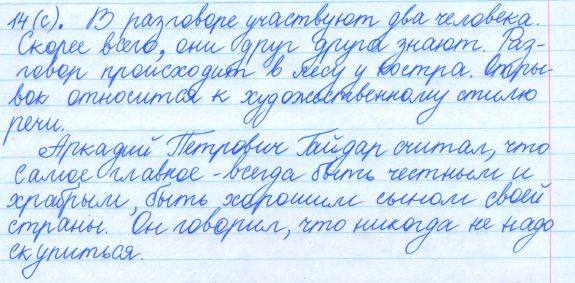 14(с). В разговоре участвуют два человека.
Скорее всего, они друг друга знают. Раз-
говор происходит в лесу у костра. Отры-
вок относится к художественному стилю
речи.
Аркадий Петрович Гайдар считал, что
самое главное - всегда быть честным и
храбрым, быть хорошим сыном своей
страны. Он говорил, что никогда не надо
скупиться.